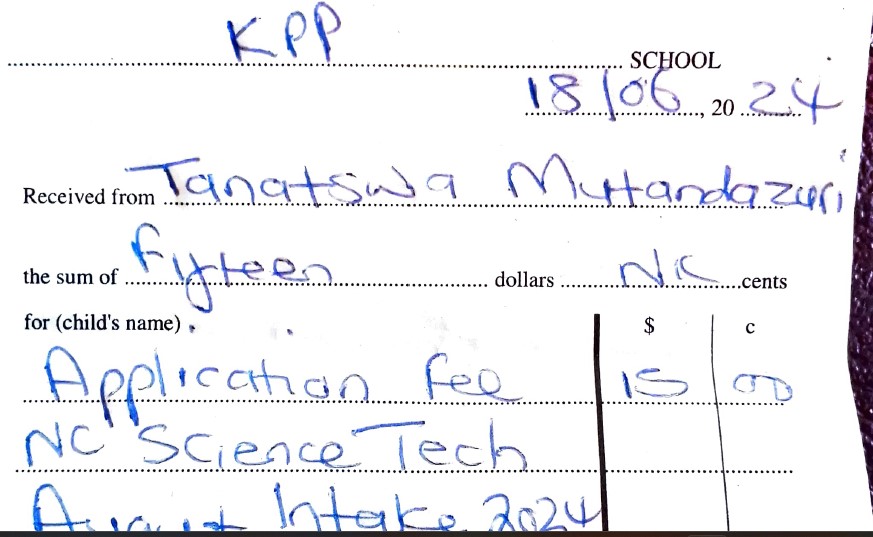 KPP
SCHOOL
18/06, 20 24
Received from Tanatswa Muttandazuri
the sum of Fifteen dollars NK cents
for (child's name) $ c
Application fee 15 00
NC Science Tech
August Intake 2024